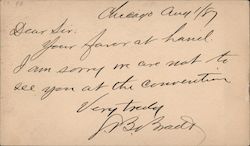 Chicago Aug 1/87
Dear Sir.
Your favor at hand.
I am sorry we are not to
see you at the convention
Very truly